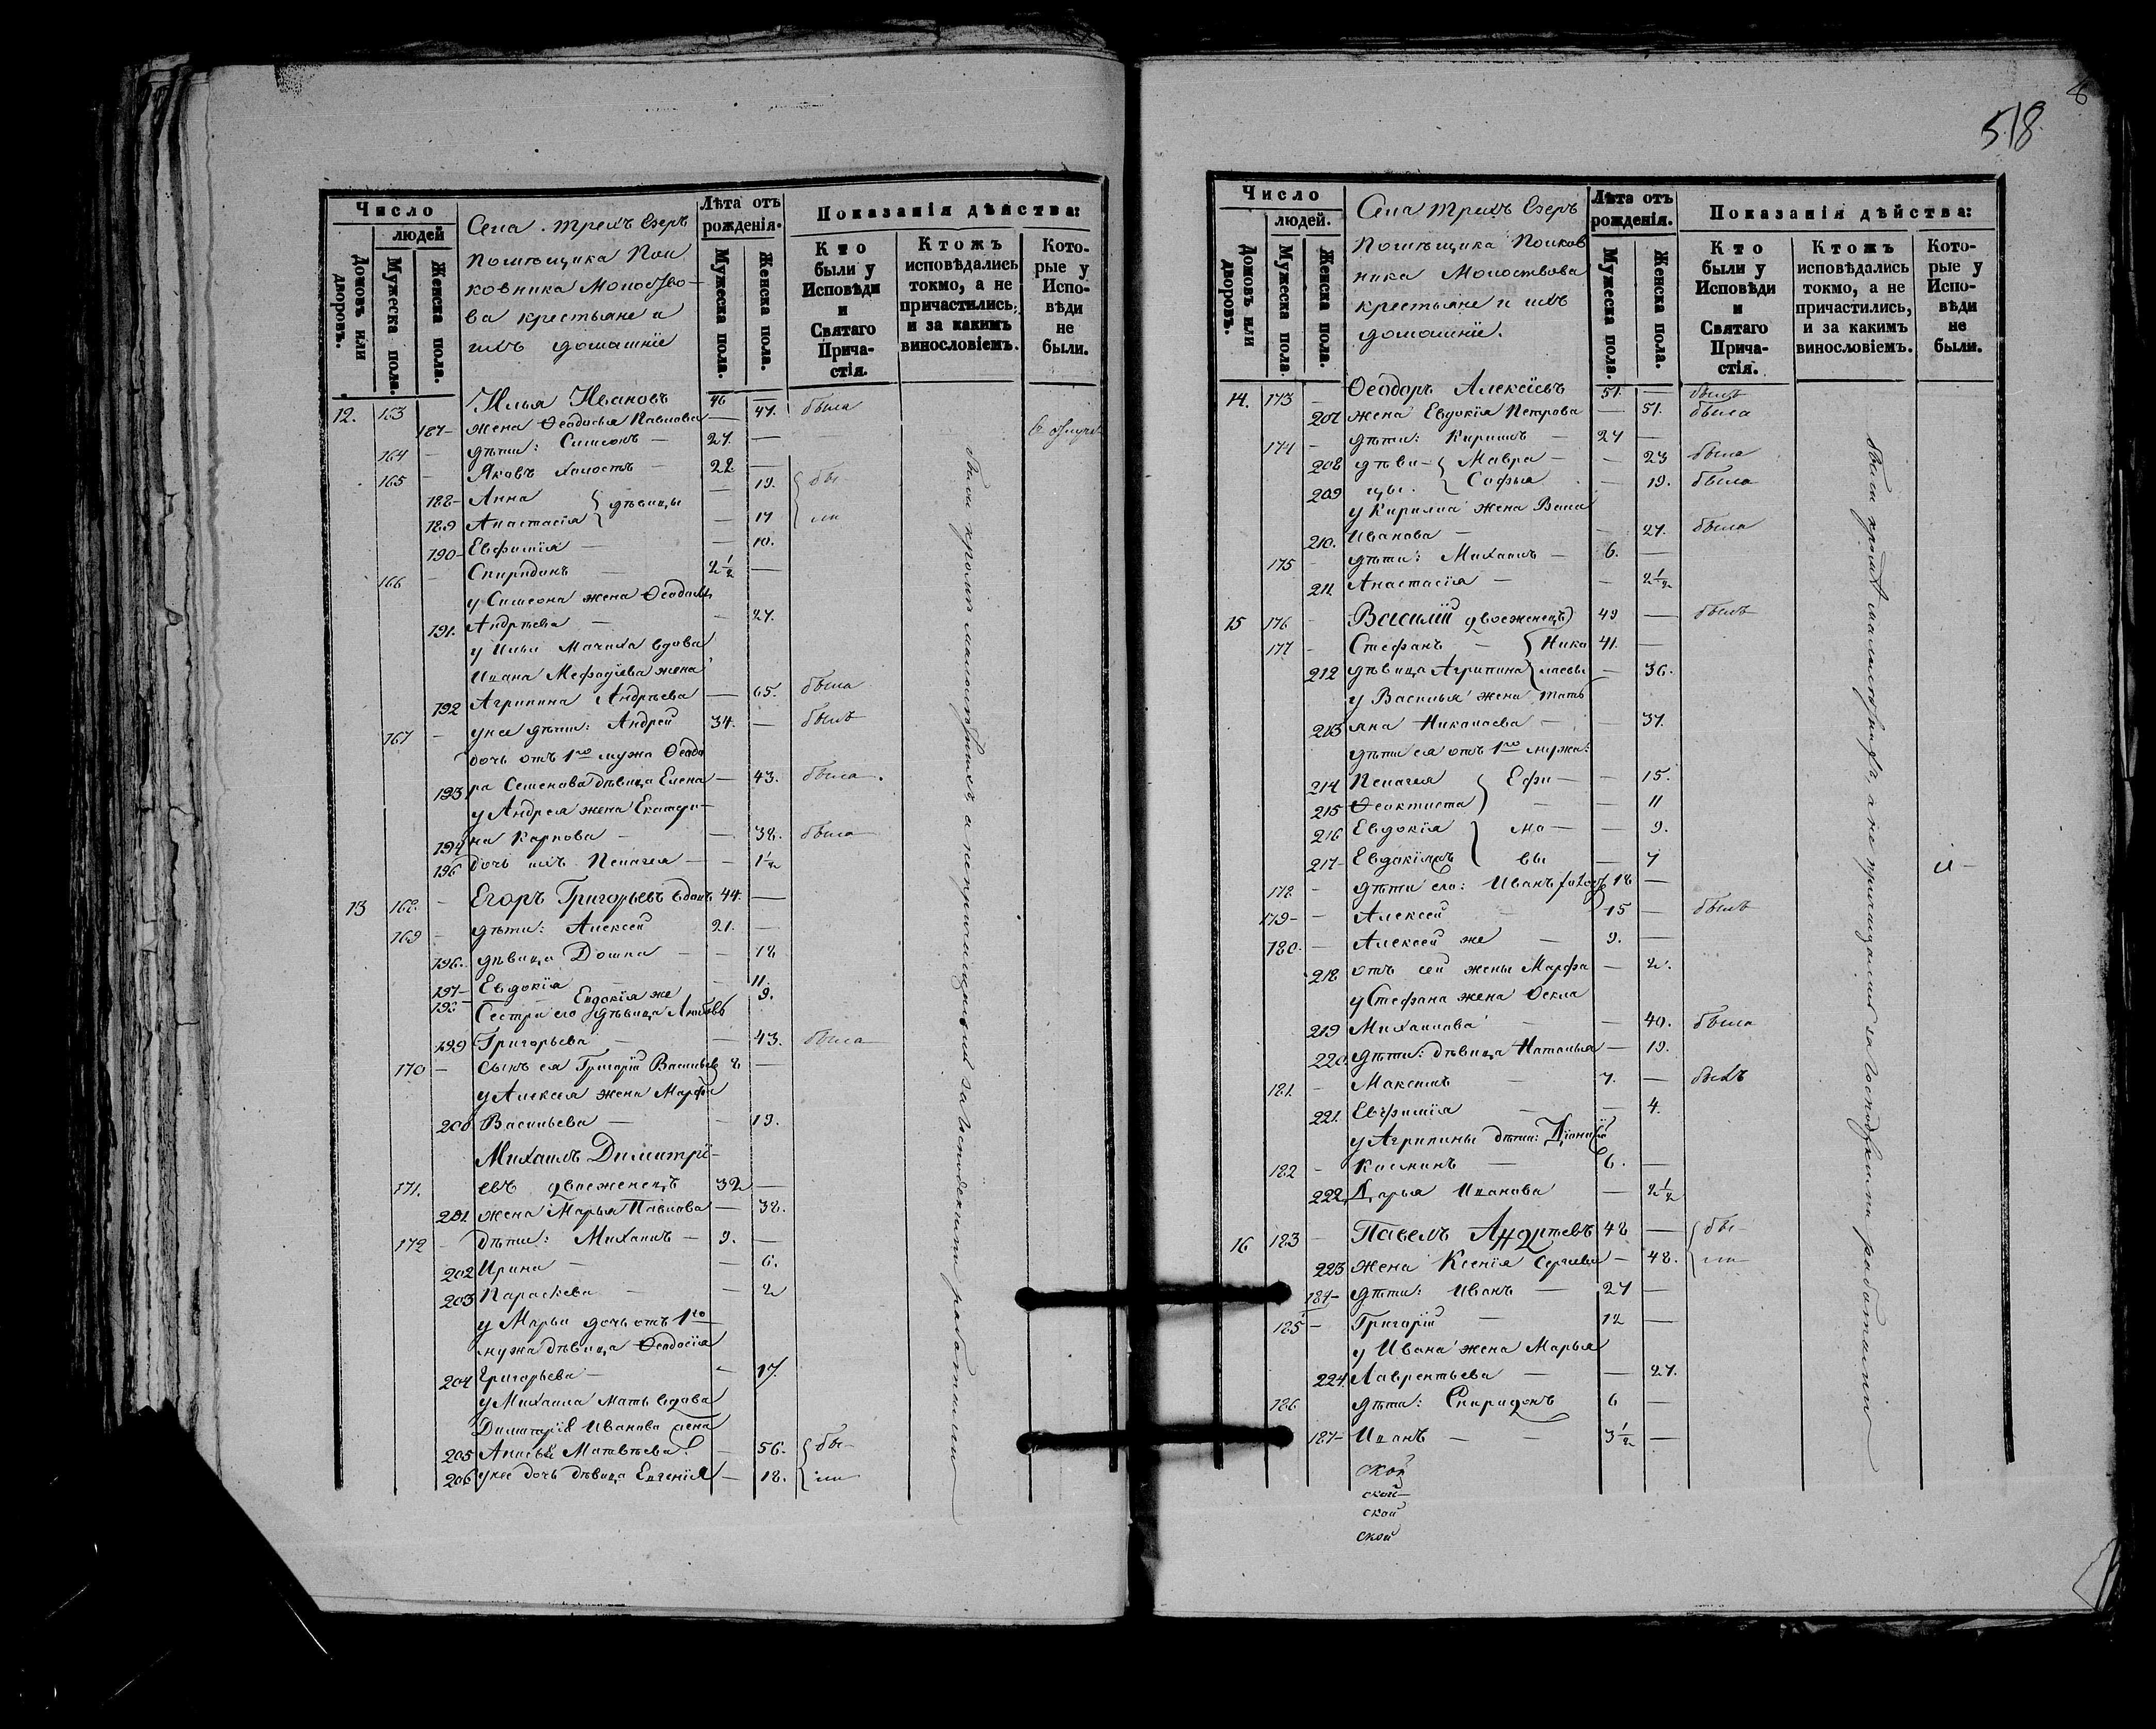 518.
Число
людей
Домовъ или дворовъ.
Мужеска пола.
Женска пола.
Села Трехъ Озеръ
Помѣщика Пол
ковника Молоство-
ва крестьяне и
ихъ домашніе
Лѣта отъ рожденія.
Мужеска пола.
Женска пола.
Показанія дѣйства:
Кто были у Исповѣди и Святаго Причастія.
Ктожъ исповѣдались токмо, а не причастились, и за какимъ винословіемъ.
Которые у Исповѣди не были.
12. 163 Илья Ивановъ 46 —
187 жена Ѳеодосья Павлова — 47. была
164 дѣти: Симеонъ — 27. —
165 Яковъ холостъ — 22. —
188 Анна } дѣвицы — 19. { бы-
189 Анастасія — 17 ли
190 Евфимія — — 10.
166 Спиридонъ 2 1/2 —
у Симеона жена Ѳеодосія
191. Андреева — — 27.
у Ильи мачиха вдова
Ивана Мефодіева жена
192 Агрипина Андреева — 65. была
167 у нее дѣти: Андрей 34. — былъ
дочь отъ 1го мужа Ѳеодо
193 ра Семенова дѣвица Елена — 43. была
у Андрея жена Екатери-
194 на Карпова — — 38. была
195 дочь ихъ Пелагея — — 1 1/2
13 168. Егоръ Григорьевъ вдовъ 44. —
169 дѣти: Алексей 21. —
196. дѣвица Домна — — 18
197 Евдокія — 11.
198 Евдокія же 9.
Сестра его дѣвица Любовь
199 Григорьева — — 43. была
170 сынъ ея Григорій Васильевъ 8 —
у Алексея жена Марфа
200 Васильева — — 19.
Михаилъ Димитрі-
171. евъ двоеженецъ 32 —
201. жена Марья Павлова — 38.
172 дѣти: Михаилъ — 9. —
202 Ирина — — 6.
203 Параскева — — 2
у Марьи дочь отъ 1го
мужа дѣвица Ѳеодосія
204 Григорьева — — 17.
у Михаила мать вдова
Димитрія Иванова жена
205 Матвѣева — 56. { бы-
206 у нее дочь дѣвица Евгенія — 18. ли
были кромѣ малолѣтнихъ а не причащались за господскими работами
Число
людей.
Домовъ или дворовъ.
Мужеска пола.
Женска пола.
Села Трехъ Озеръ
Помѣщика Полков
ника Молоствова
крестьяне и ихъ
домашніе.
Лѣта отъ рожденія.
Мужеска пола.
Женска пола.
Показанія дѣйства:
Кто были у Исповѣди и Святаго Причастія.
Ктожъ исповѣдались токмо, а не причастились, и за какимъ винословіемъ.
Которые у Исповѣди не были.
14. 173 Ѳеодоръ Алексѣевъ 51. — былъ
207 жена Евдокія Петрова — 51. была
174 дѣти: Кирилъ — 27 —
208 дѣви- { Мавра — — 23 была
209 цы. { Софья — 19. была
у Кирилла жена Васса
210. Иванова — — 27. была
175 дѣти: Михаилъ — 6. —
211 Анастасія — — 2 1/2
15 176 Василій двоеженецъ 49 — былъ
177 Стефанъ — { Нико 41. —
212 дѣвица Агрипина { лаевы — 36.
у Василья жена Тать
213 яна Николаева — — 37.
дѣти ея отъ 1го мужа:
214 Пелагея } Ефи — — 15.
215 Ѳеоктиста — — 11
216 Евдокія } мо — — 9.
217 вы — 7
178 дѣти его: Иванъ 18 —
179 Алексей 15 — былъ
180. Алексей же — 9. —
218 отъ сей жены Марфа — 2.
у Стефана жена Ѳекла
219 Михаилова — — 40. была
220. дѣти: дѣвица Наталья — 19.
181. Максимъ — 7. — былъ
221. Евфимія — — 4.
у Агрипины дѣти:
182 6. —
222 Дарья Иванова — 2 1/2
16 183 Павелъ Андреевъ 48 — { бы-
223 жена Ксенія Сергеева — 48. ли
184 дѣти: Иванъ — 27 —
185 Григорій — 12 —
у Ивана жена Марья
224. Лаврентьева — — 27.
186 дѣти: Спиридонъ 6 —
187 Иванъ — — 3 1/2 —
ской
ской
ской
ской
были кромѣ малолѣтнихъ а не причащались за господскими работами